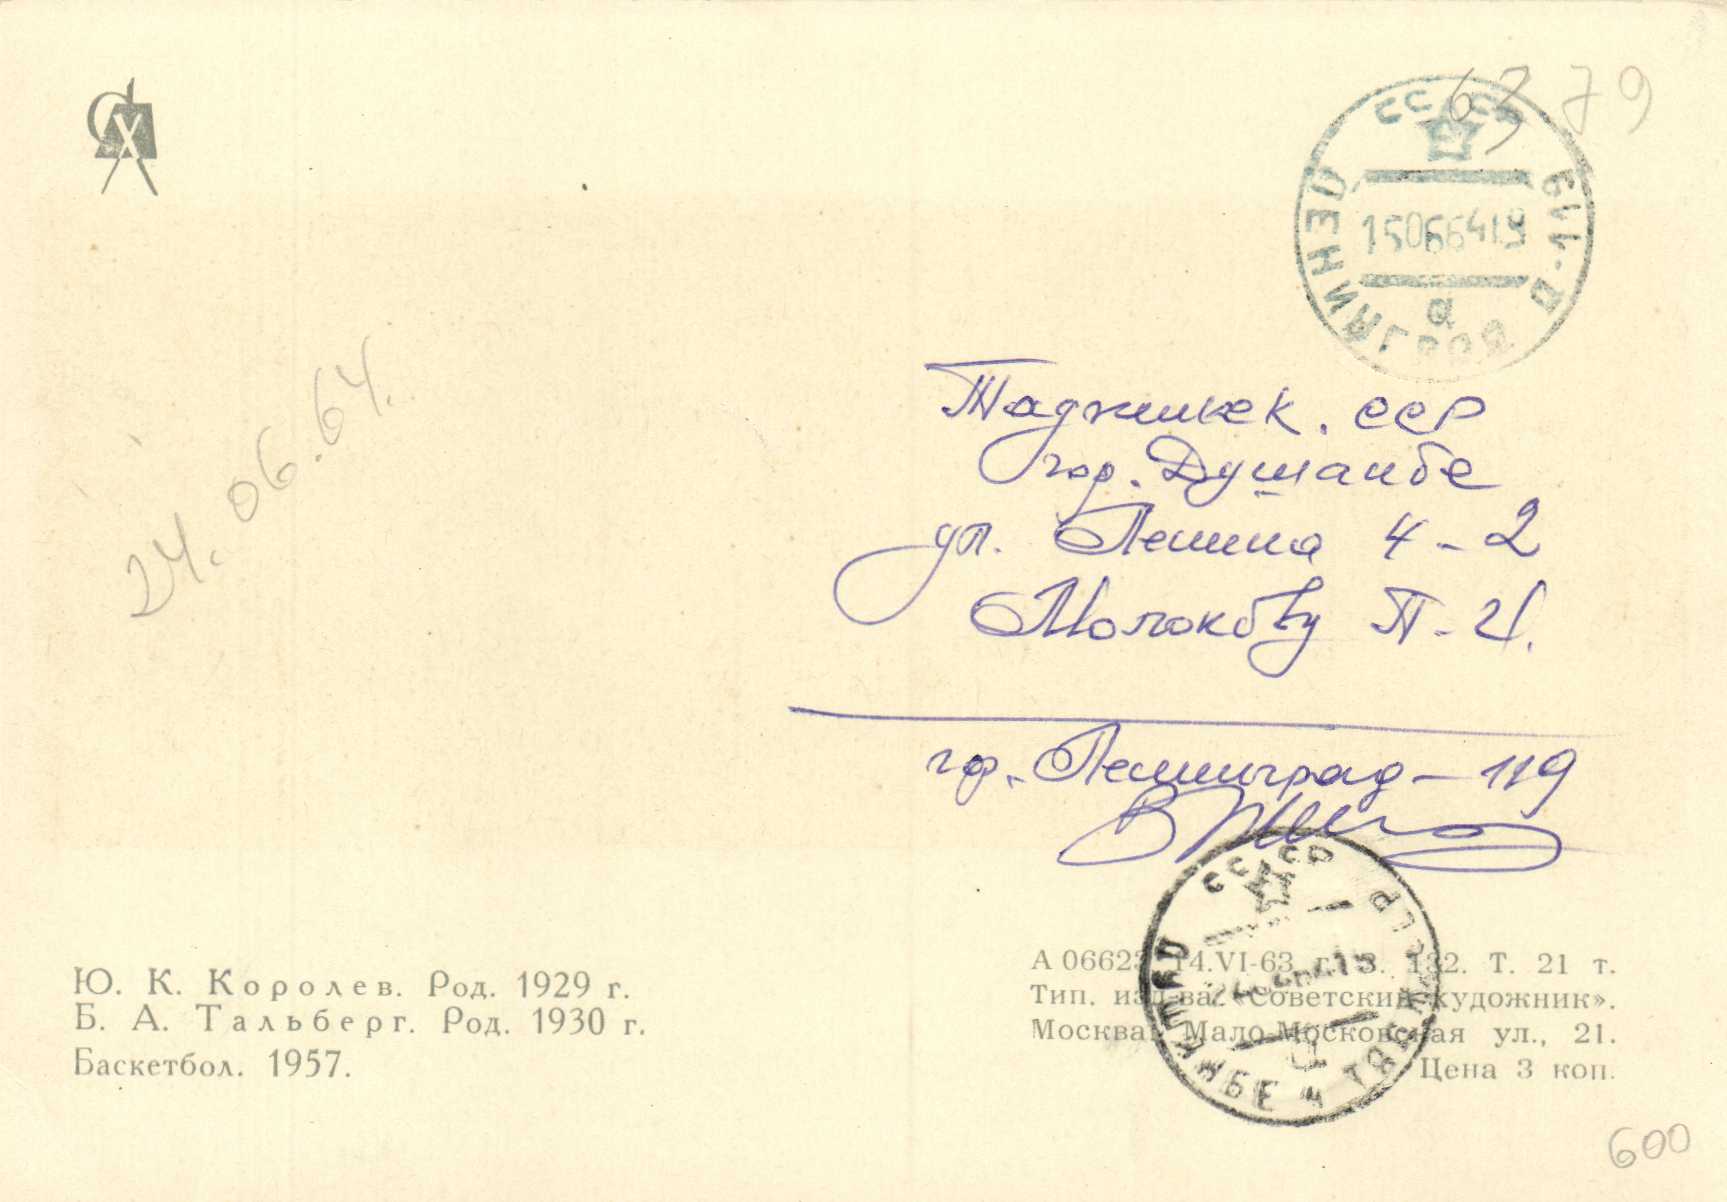 63 79
СССР
ЛЕНИНГРАД Д-119
15066419
а
24.06.64.
Таджикск. ССР
гор. Душанбе
ул. Ленина 4-2
Молокову П-И.
гор. Ленинград-119
СССР
Ю. К. Королев. Род. 1929 г.
Б. А. Тальберг. Род. 1930 г.
Баскетбол. 1957.
А 06623 14.VI-63 г. З. 132. Т. 21 т.
Тип. изд-ва «Советский художник».
Москва, Мало-Московская ул., 21.
Цена 3 коп.
600